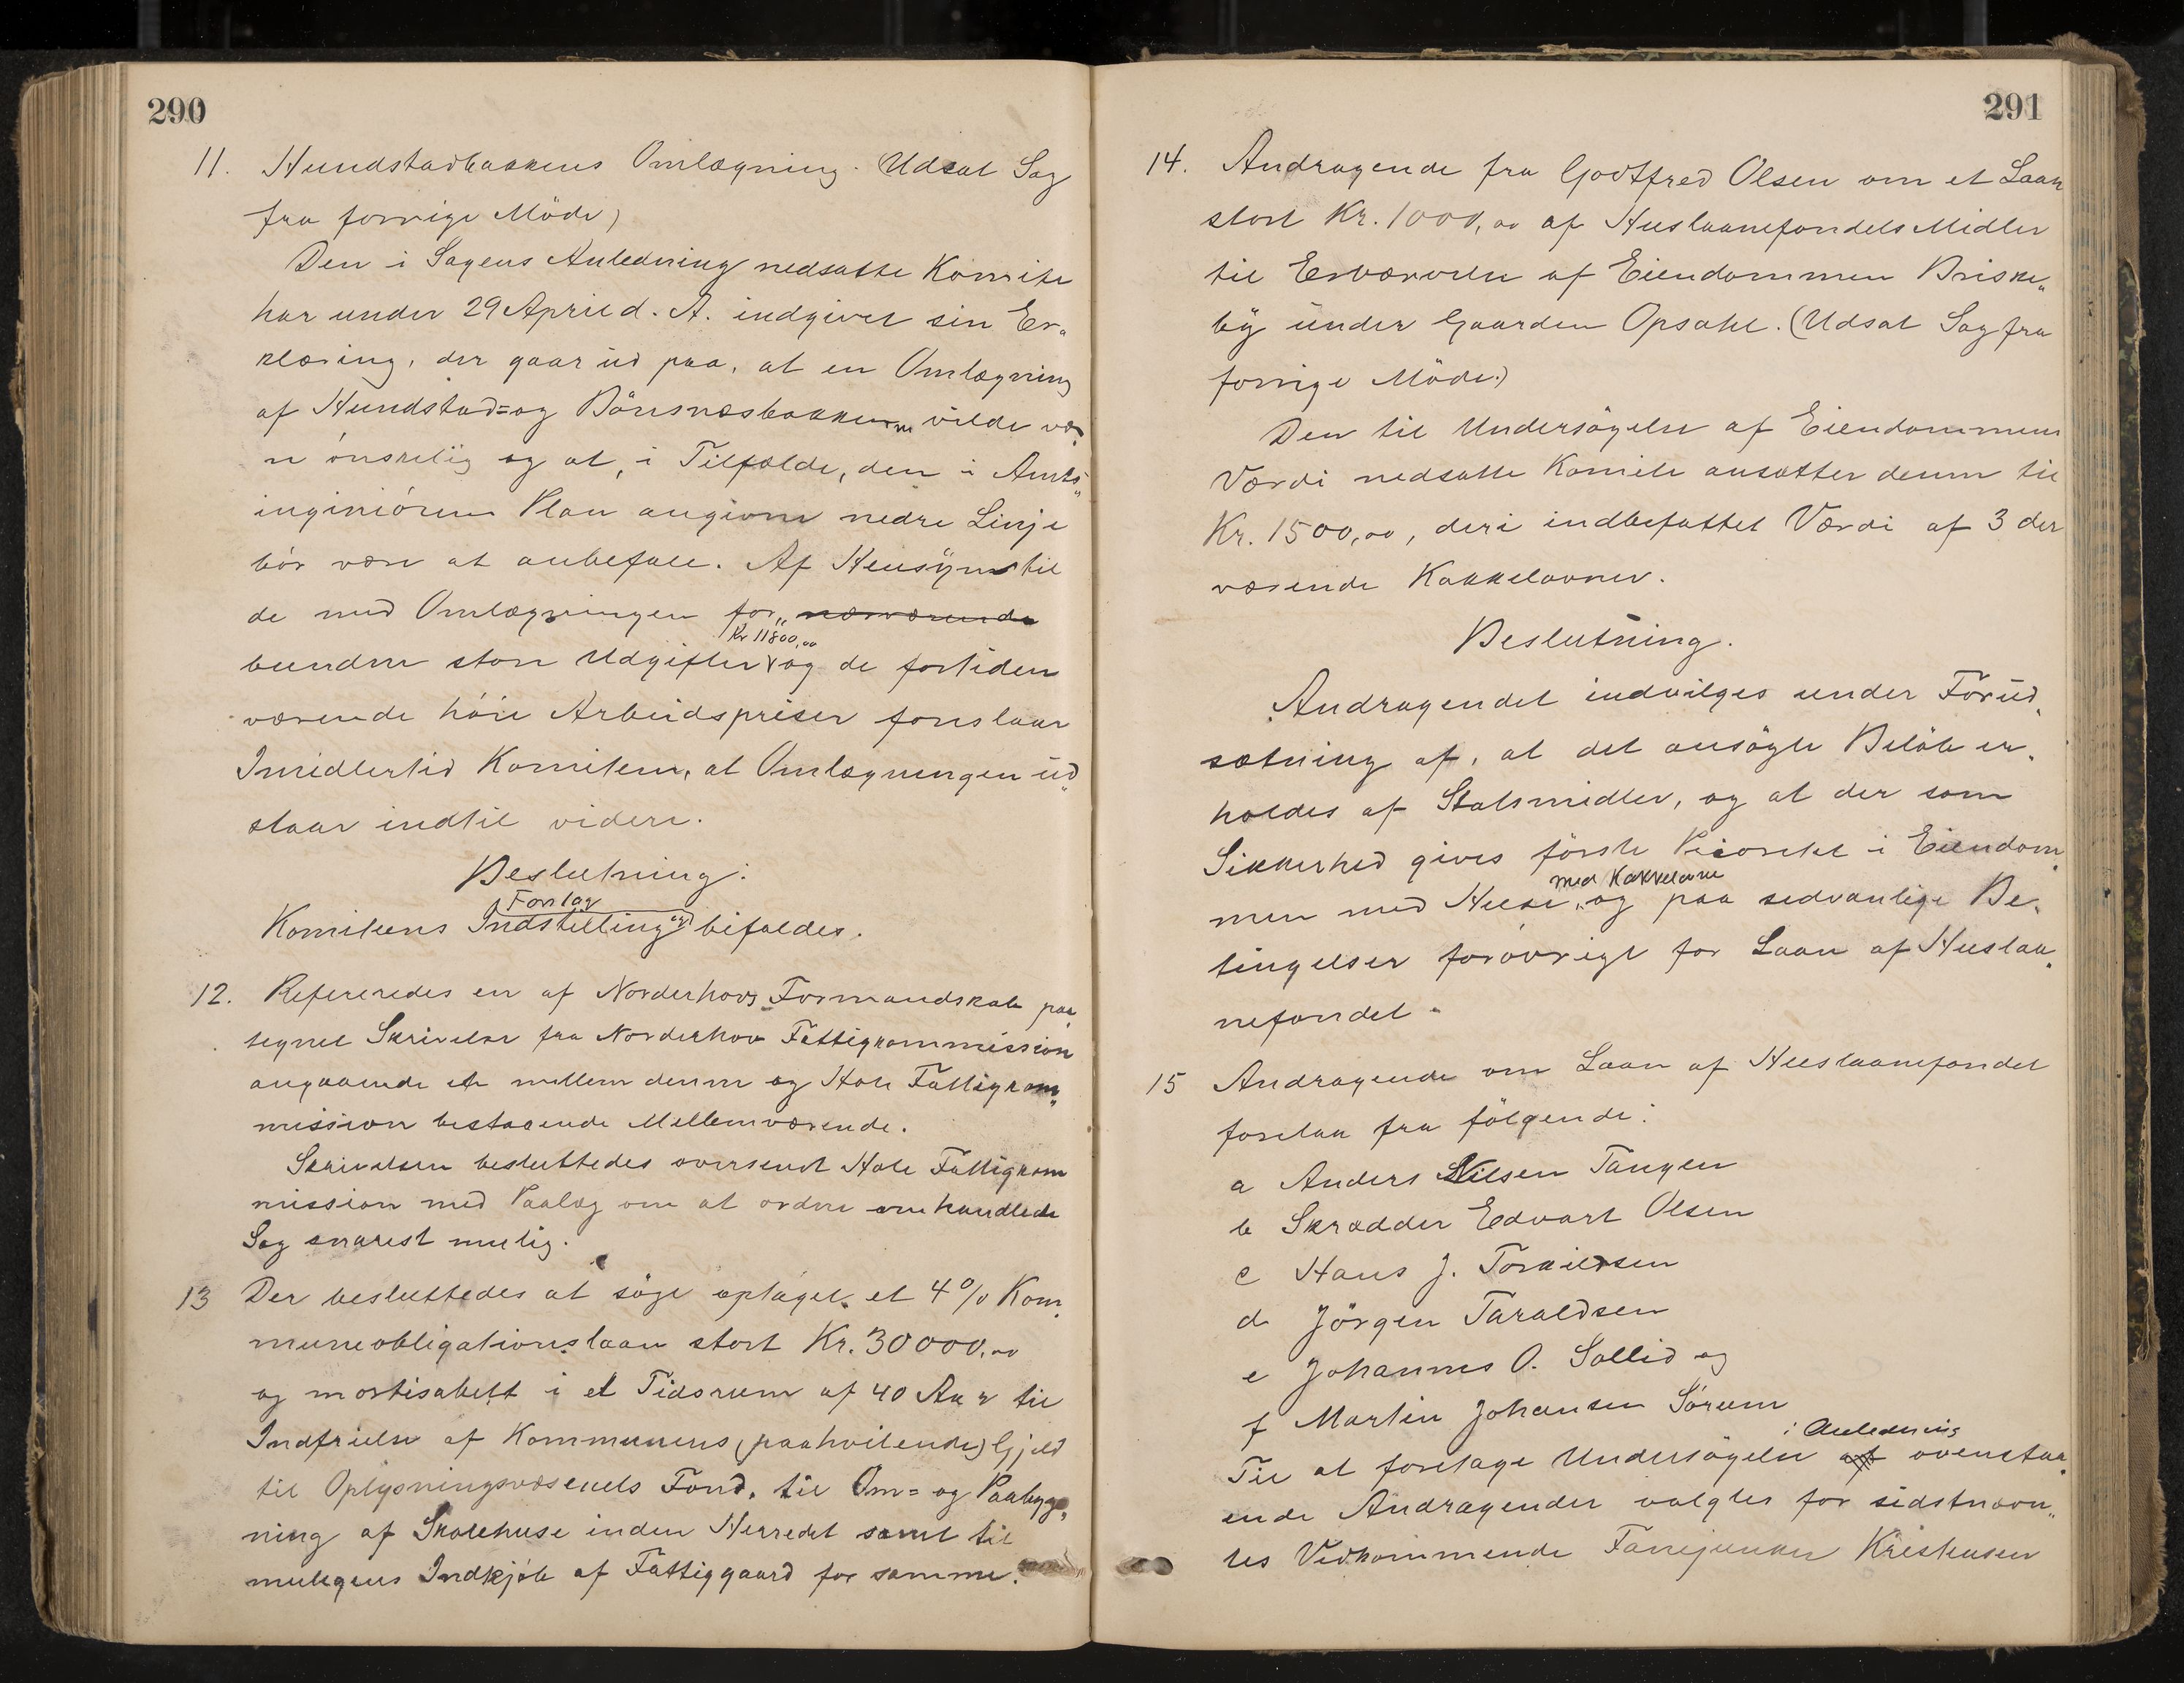 290
11. Hundstadbakkens Omlægning. (Udsat Sag
fra forrige Möde)
Den i Sagens Anledning nedsatte Komite
har under 29 April d. A. indgivet sin Er„
klæring, der gaar ud paa, at en Omlægning
af Hundstad= og Bönsnæsbakkerne vilde væ„
re ónskelig og at, i Tilfælde, den i Amts„
inginiórens Plan angivne nedre Linje
bór være at anbefale. Af Hensyn til
de med Omlægningen for„ nærværende
Kr 11800,00
bundne store Udgifter og de fortiden
værende hóie Arbeidspriser foreslaar
Imidlertid Komiteen, at Omlægningen ud„
staar indtil videre.
Beslutning:
Forslag
Komiteens Indstilling bifaldes.
12. Refereredes en af Norderhovs Formandskab paa„
tegnet Skrivelse fra Norderhov Fattigkommission
angaaende et mellem denne og Hole Fattigkom„
mission bestaaende Mellemværende.
Skrivelsen besluttedes oversendt Hole Fattigkom
mission med Paalæg om at ordne omhandlede
Sag snarest mulig.
13 Der besluttedes at söge optaget et 4 % Kom„
muneobligationslaan stort Kr. 30000,00
og mortisabelt i et Tidsrum af 40 Aar til
Indfrielse af Kommunens (paahvilende) Gjeld
til Oplysningsvæsenets Fond, til Om= og Paabyg„
ning af Skolehuse inden Herredet samt til
muligens Indkjób af Fattiggaard for samme.
291
14. Andragende fra Godtfred Olsen om et Laan
stort Kr. 1000,00 af Huslaanefondets Midler
til Erhvervelse af Eiendommen Briske„
by under Gaarden Opsahl. (Udsat Sag fra
forrige Möde.)
Den til Undersögelse af Eiendommens
Værdi nedsatte Komite ansætter denne til
Kr. 1500,00, deri indbefattet Værdi af 3 der
værende Kakkelovner.
Beslutning.
Andragendet indvilges under Forud„
sætning af, at det ansögte Belöb er„
holdes af Statsmidler, og at der som
Sikkerhed gives förste Prioritet i Eiendom„
med Kakkelovne
men med Huse, og paa sedvanlige Be„
tingelser foróvrigt for Laan af Huslaa„
nefondet.
15 Andragende om Laan af Huslaanefondet
forelaa fra fölgende:
a Anders Nilsen Tangen
b Skrædder Edvart Olsen
c Hans J. Torkildsen
d Jörgen Taraldsen
e Johannes O. Sollid og
f Martin Johansen Sórum
i Anledning
Til at foretage Undersögelse af ovenstaa„
ende Andragender valgtes for sidstnævn„
tes Vedkommende Fanejunker Kristensen